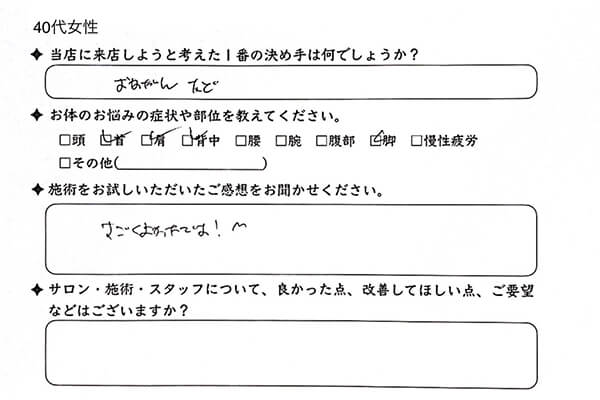 40代女性
✦ 当店に来店しようと考えた1番の決め手は何でしょうか？
おねだん など
✦ お体のお悩みの症状や部位を教えてください。
□頭 ☑首 ☑肩 ☑背中 □腰 □腕 □腹部 ☑脚 □慢性疲労
□その他( )
✦ 施術をお試しいただいたご感想をお聞かせください。
すごくよかったです！
✦ サロン・施術・スタッフについて、良かった点、改善してほしい点、ご要望
などはございますか？